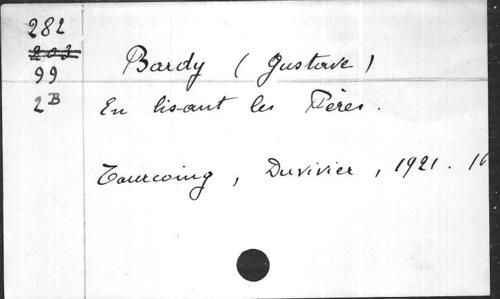 282
203
99
2B
Bardy (Gustave)
En lisant les Pères.
Tourcoing, Duvivier, 1921. 16